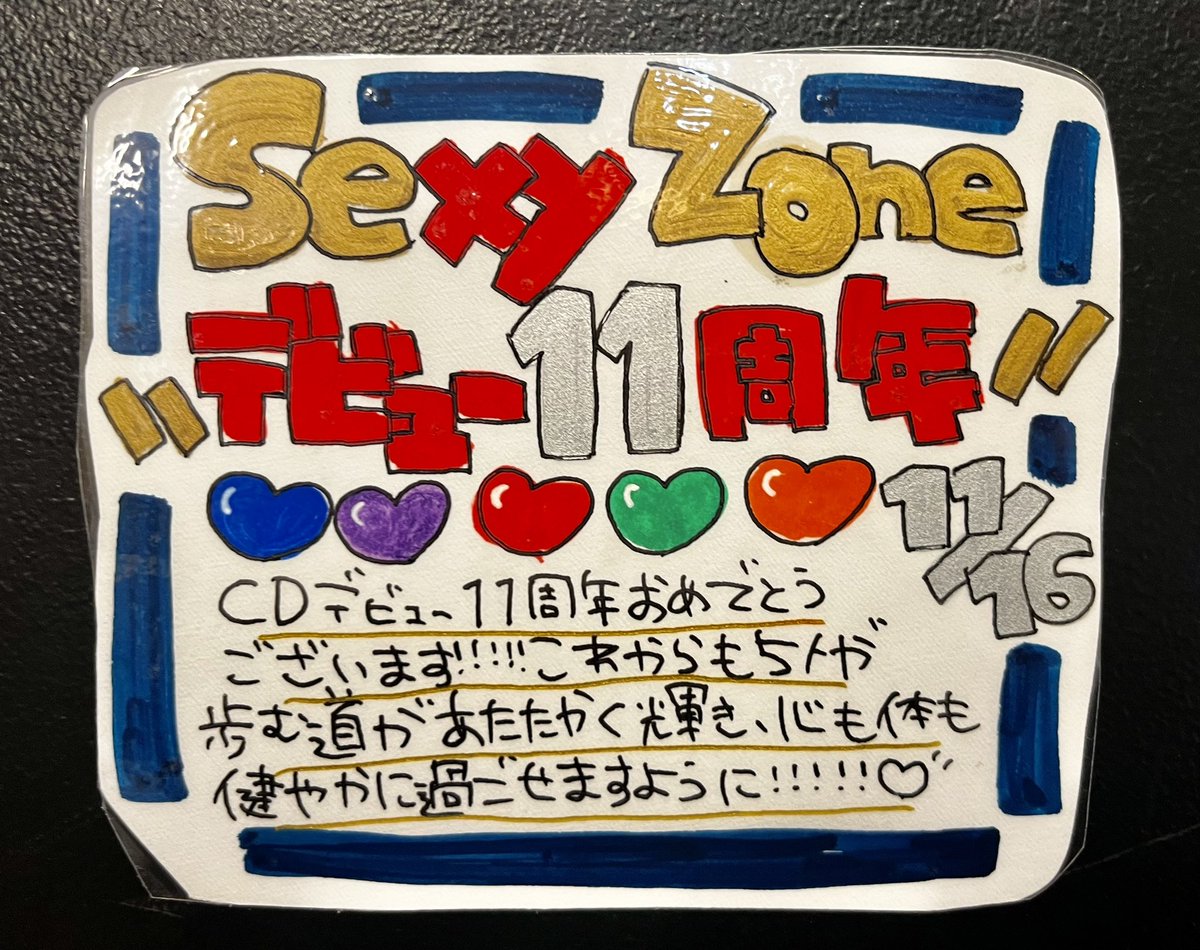 Sexy Zone
デビュー11周年
11/16
CDデビュー11周年おめでとう
ございます!!!!!これからも5人が
歩む道があたたかく輝き、心も体も
健やかに過ごせますように!!!!!♡